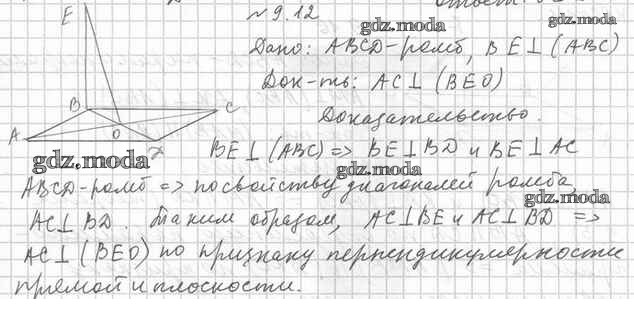 Ответ:
№ 9.12
gdz.moda
gdz.moda
Дано: ABCD-ромб, BE⊥(ABC)
Док-ть: AC⊥(BEO)
Доказательство.
E
B
C
A
O
gdz.moda
BE⊥(ABC) => BE⊥BD и BE⊥AC
gdz.moda
ABCD-ромб => по свойству диагоналей ромба,
gdz.moda
AC⊥BD. Таким образом, AC⊥BE и AC⊥BD =>
AC⊥(BEO) по признаку перпендикулярности
прямой и плоскости.